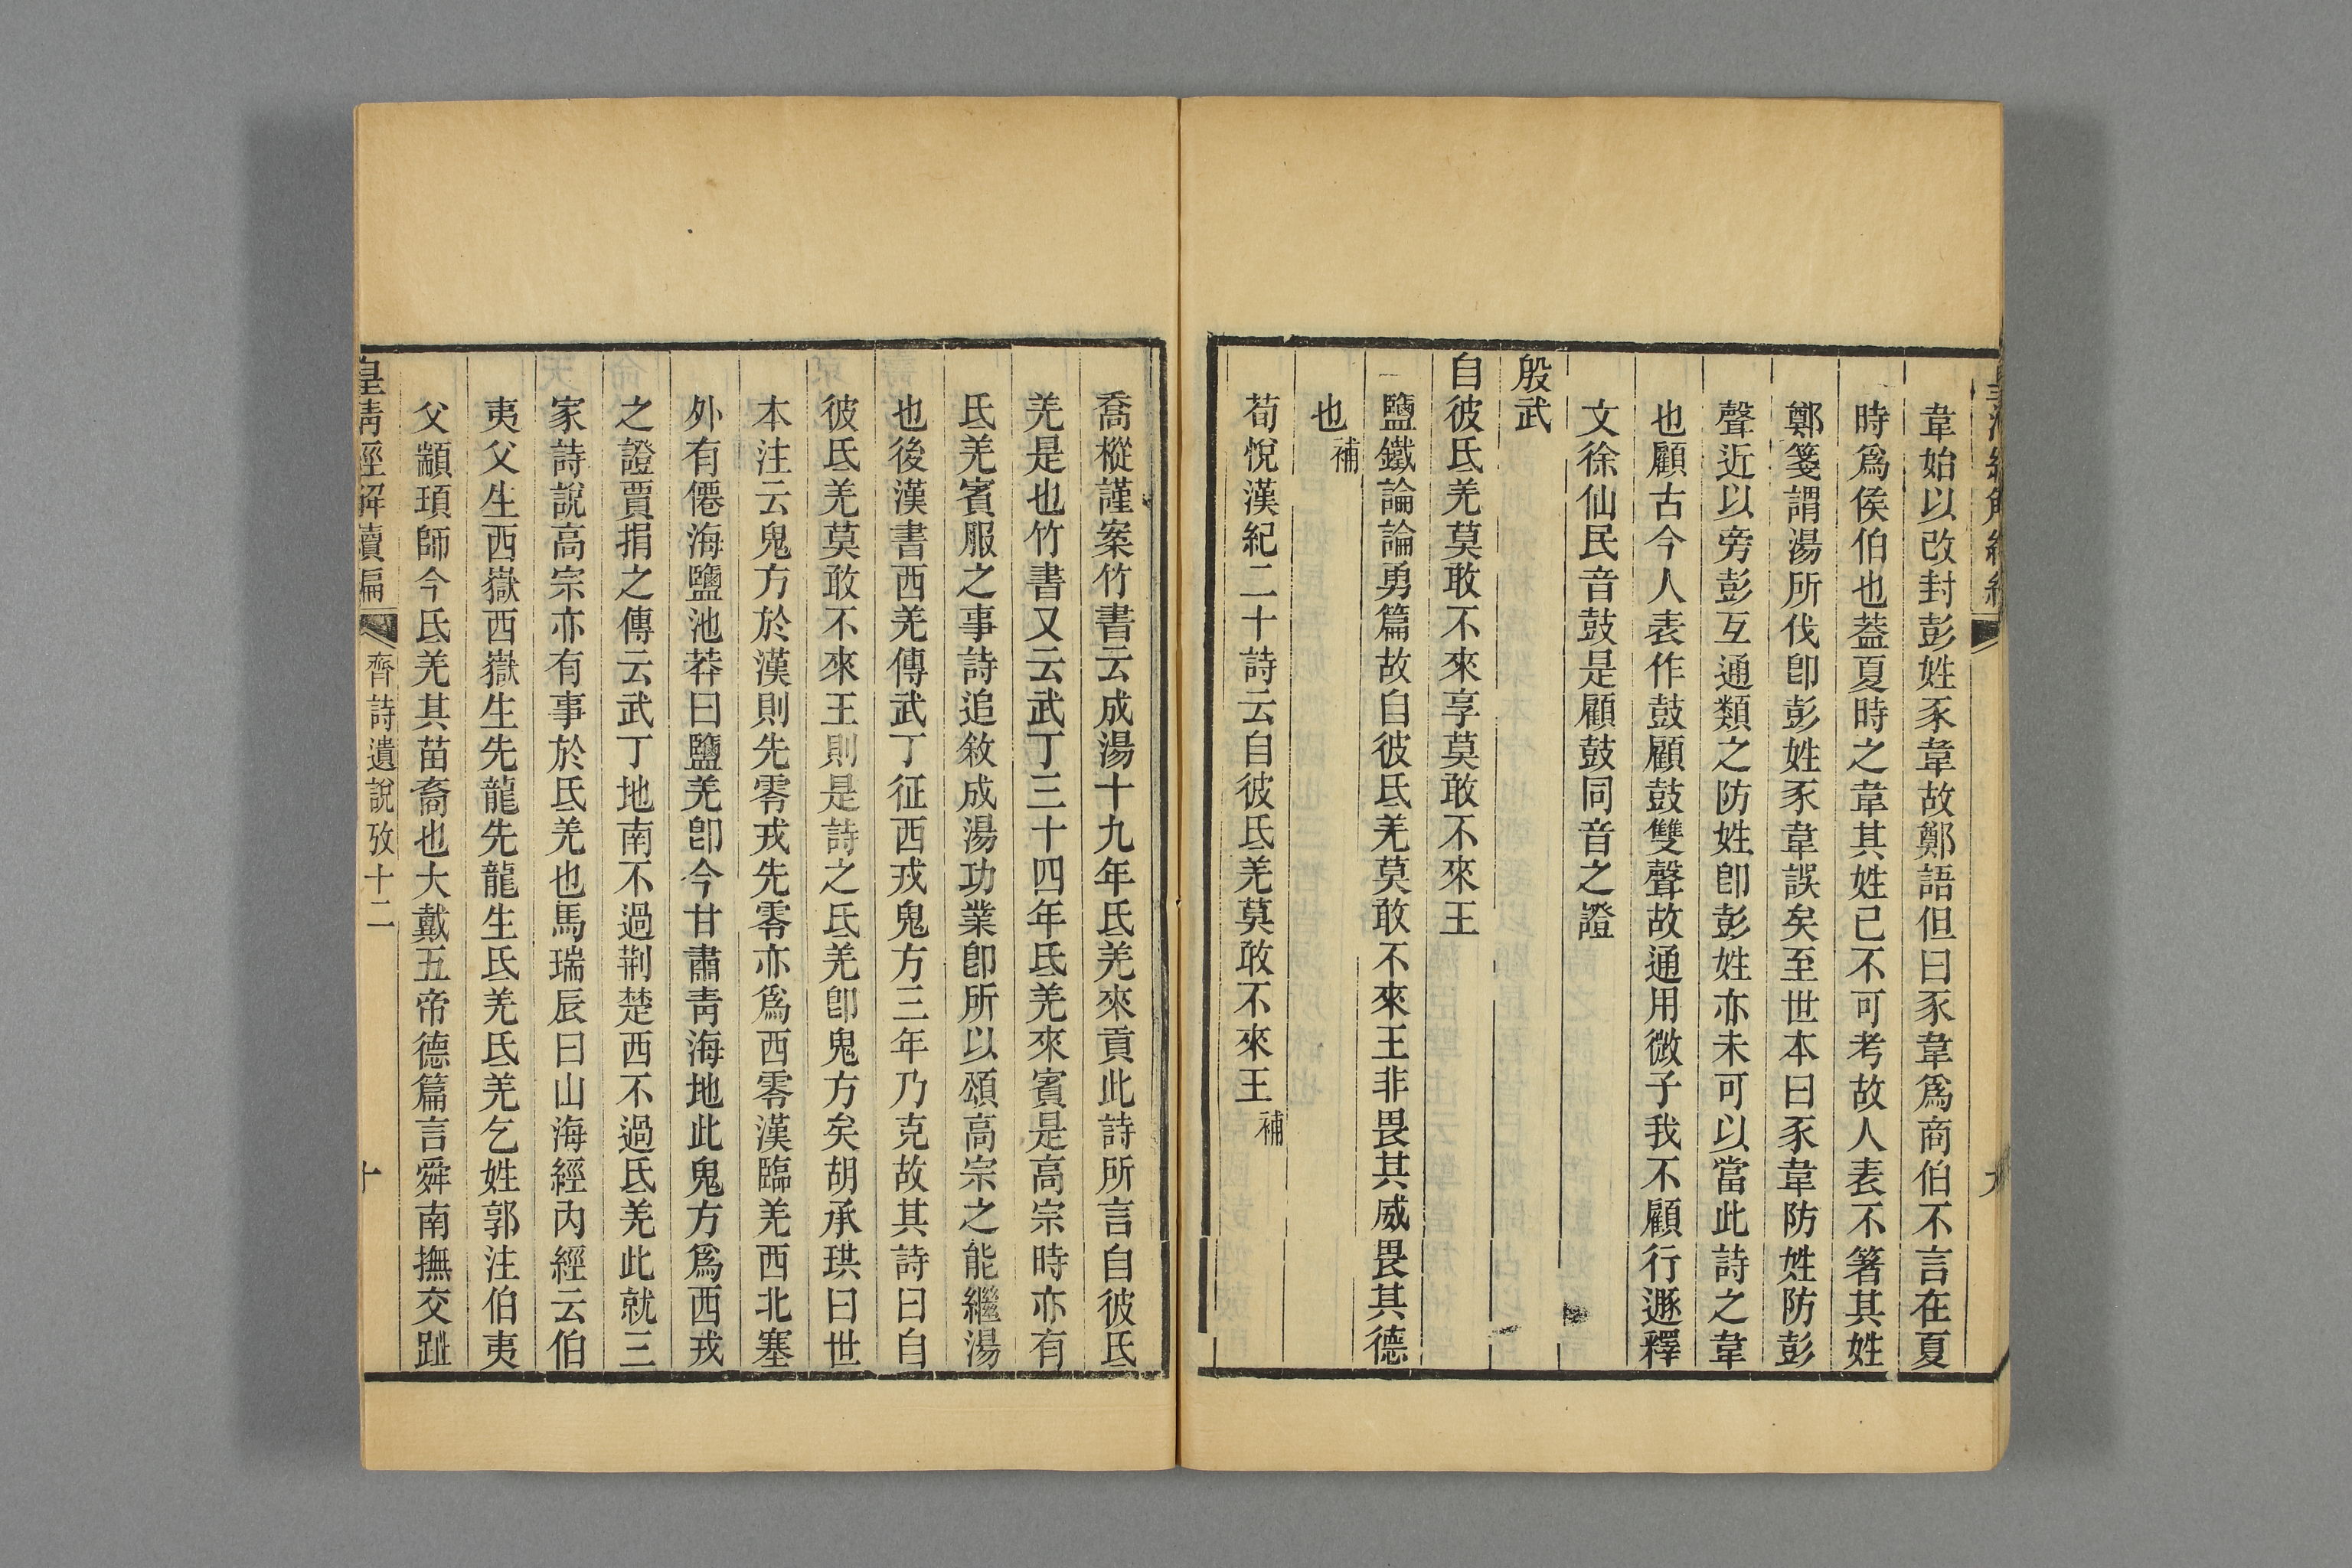 韋始以改封彭姓豕韋故鄭語但曰豕韋爲商伯不言在夏
時爲侯伯也葢夏時之韋其姓已不可考故人表不箸其姓
鄭箋謂湯所伐卽彭姓豕韋誤矣至世本曰豕韋防姓防彭
聲近以旁彭互通類之防姓卽彭姓亦未可以當此詩之韋
也顧古今人表作鼓顧鼓雙聲故通用微子我不顧行遯釋
文徐仙民音鼓是顧鼓同音之證
殷武
自彼氐羌莫敢不來享莫敢不來王
鹽鐵論論勇篇故自彼氐羌莫敢不來王非畏其威畏其德
也補
荀悅漢紀二十詩云自彼氐羌莫敢不來王補
喬樅謹案竹書云成湯十九年氐羌來貢此詩所言自彼氐
羌是也竹書又云武丁三十四年氐羌來賓是高宗時亦有
氐羌賓服之事詩追敘成湯功業卽所以頌高宗之能繼湯
也後漢書西羌傳武丁征西戎鬼方三年乃克故其詩曰自
彼氐羌莫敢不來王則是詩之氐羌卽鬼方矣胡承珙曰世
本注云鬼方於漢則先零戎先零亦爲西零漢臨羌西北塞
外有僊海鹽池莽曰鹽羌卽今甘肅靑海地此鬼方爲西戎
之證賈捐之傳云武丁地南不過荆楚西不過氐羌此就三
家詩說高宗亦有事於氐羌也馬瑞辰曰山海經內經云伯
夷父生西嶽西嶽生先龍先龍生氐羌氐羌乞姓郭注伯夷
父顓頊師今氐羌其苗裔也大戴五帝德篇言舜南撫交趾
皇淸經解續編 齊詩遺說攷十二 十